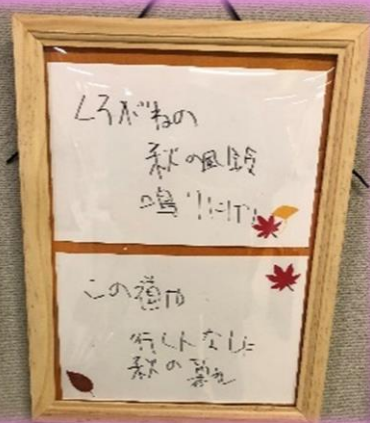 くろがねの
秋の風鈴
鳴りにけり
この道や
行く人なしに
秋の暮